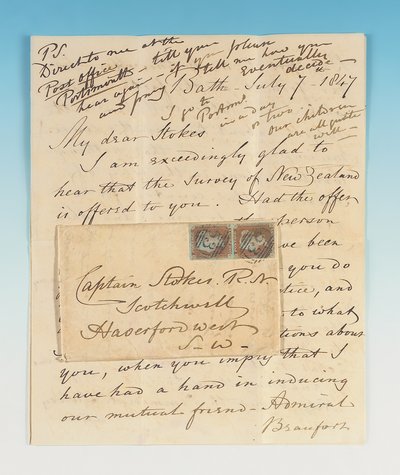 P.S.
Direct to me at the
Post Office
Portsmouth till you please
hear again - if you
and pray tell me how you
eventually
decide
Bath - July 7 - 1847
I go to
Portsm.
in a day
or two.
our children
are all quite
well -
My dear Stokes
I am exceedingly glad to
hear that the Survey of New Zealand
is offered to you. Had the offer
person
ve been
you do
tice, and
to what
tions about
you, when you imply that I
have had a hand in inducing
our mutual friend - Admiral
Beaufort
Captain Stokes. R.N
Scotchwell
Haverfordwest
S-W-